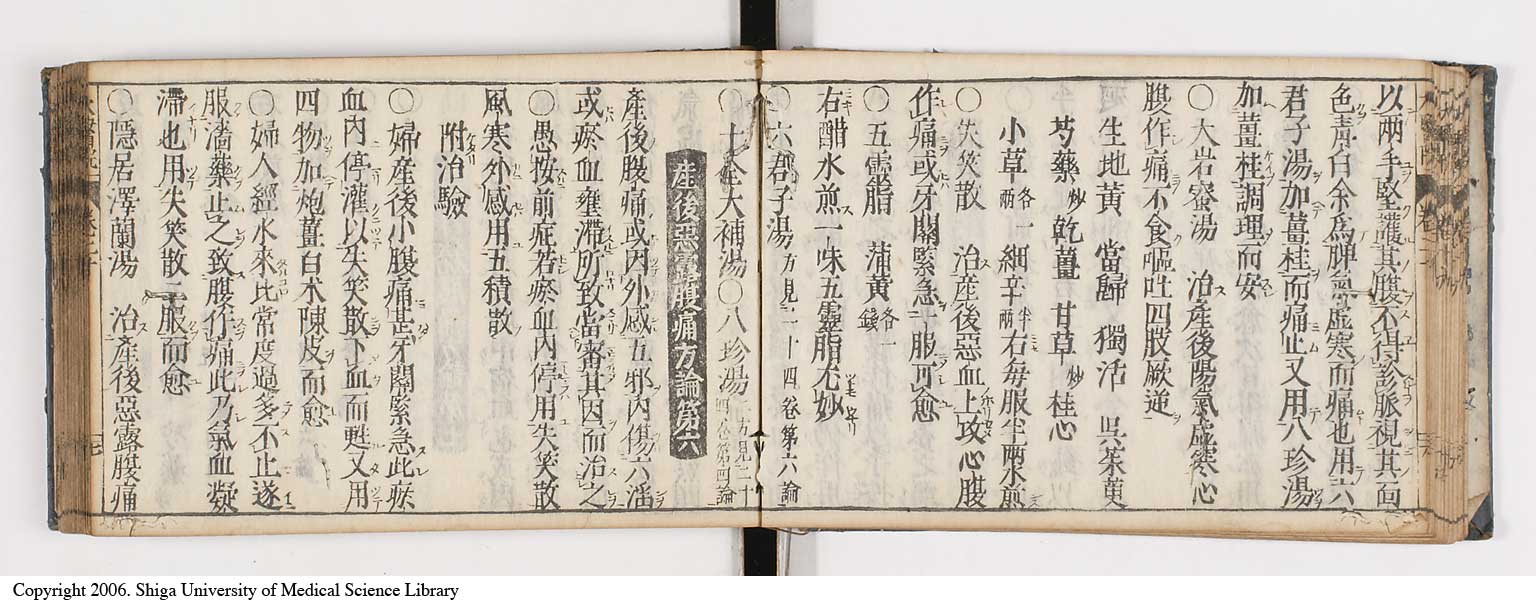 以兩手堅護其腹不得診脈視其面
色青白余爲脾氣虛寒而痛也用六
君子湯加薑桂而痛止又用八珍湯
加薑桂調理而安
〇大岩蜜湯　治產後陽氣虛寒心
腹作痛不食嘔吐四肢厥逆
生地黃　當歸　獨活　吳茱萸
芍藥炒　乾薑　甘草炒　桂心
小草各一兩　細辛半兩　右每服半兩水煎
〇失笑散　治產後惡血上攻心腹
作痛或牙關緊急一服可愈
〇五靈脂　蒲黃各一錢
右醋水煎一味五靈脂尤妙
〇六君子湯方見二十四卷第六論
〇十全大補湯〇八珍湯二方見二十四卷第四論
產後惡露腹痛方論第六
產後腹痛或因外感五邪內傷六淫
或瘀血壅滯所致當審其因而治之
〇愚按前症若瘀血內停用失笑散
風寒外感用五積散
附治驗
〇婦產後小腹痛甚牙關緊急此瘀
血內停灌以失笑散下血而甦又用
四物加炮薑白朮陳皮而愈
〇婦人經水來比常度過多不止遂
服濇藥止之致腹作痛此乃氣血凝
滯也用失笑散二服而愈
〇隱居澤蘭湯　治產後惡露腹痛